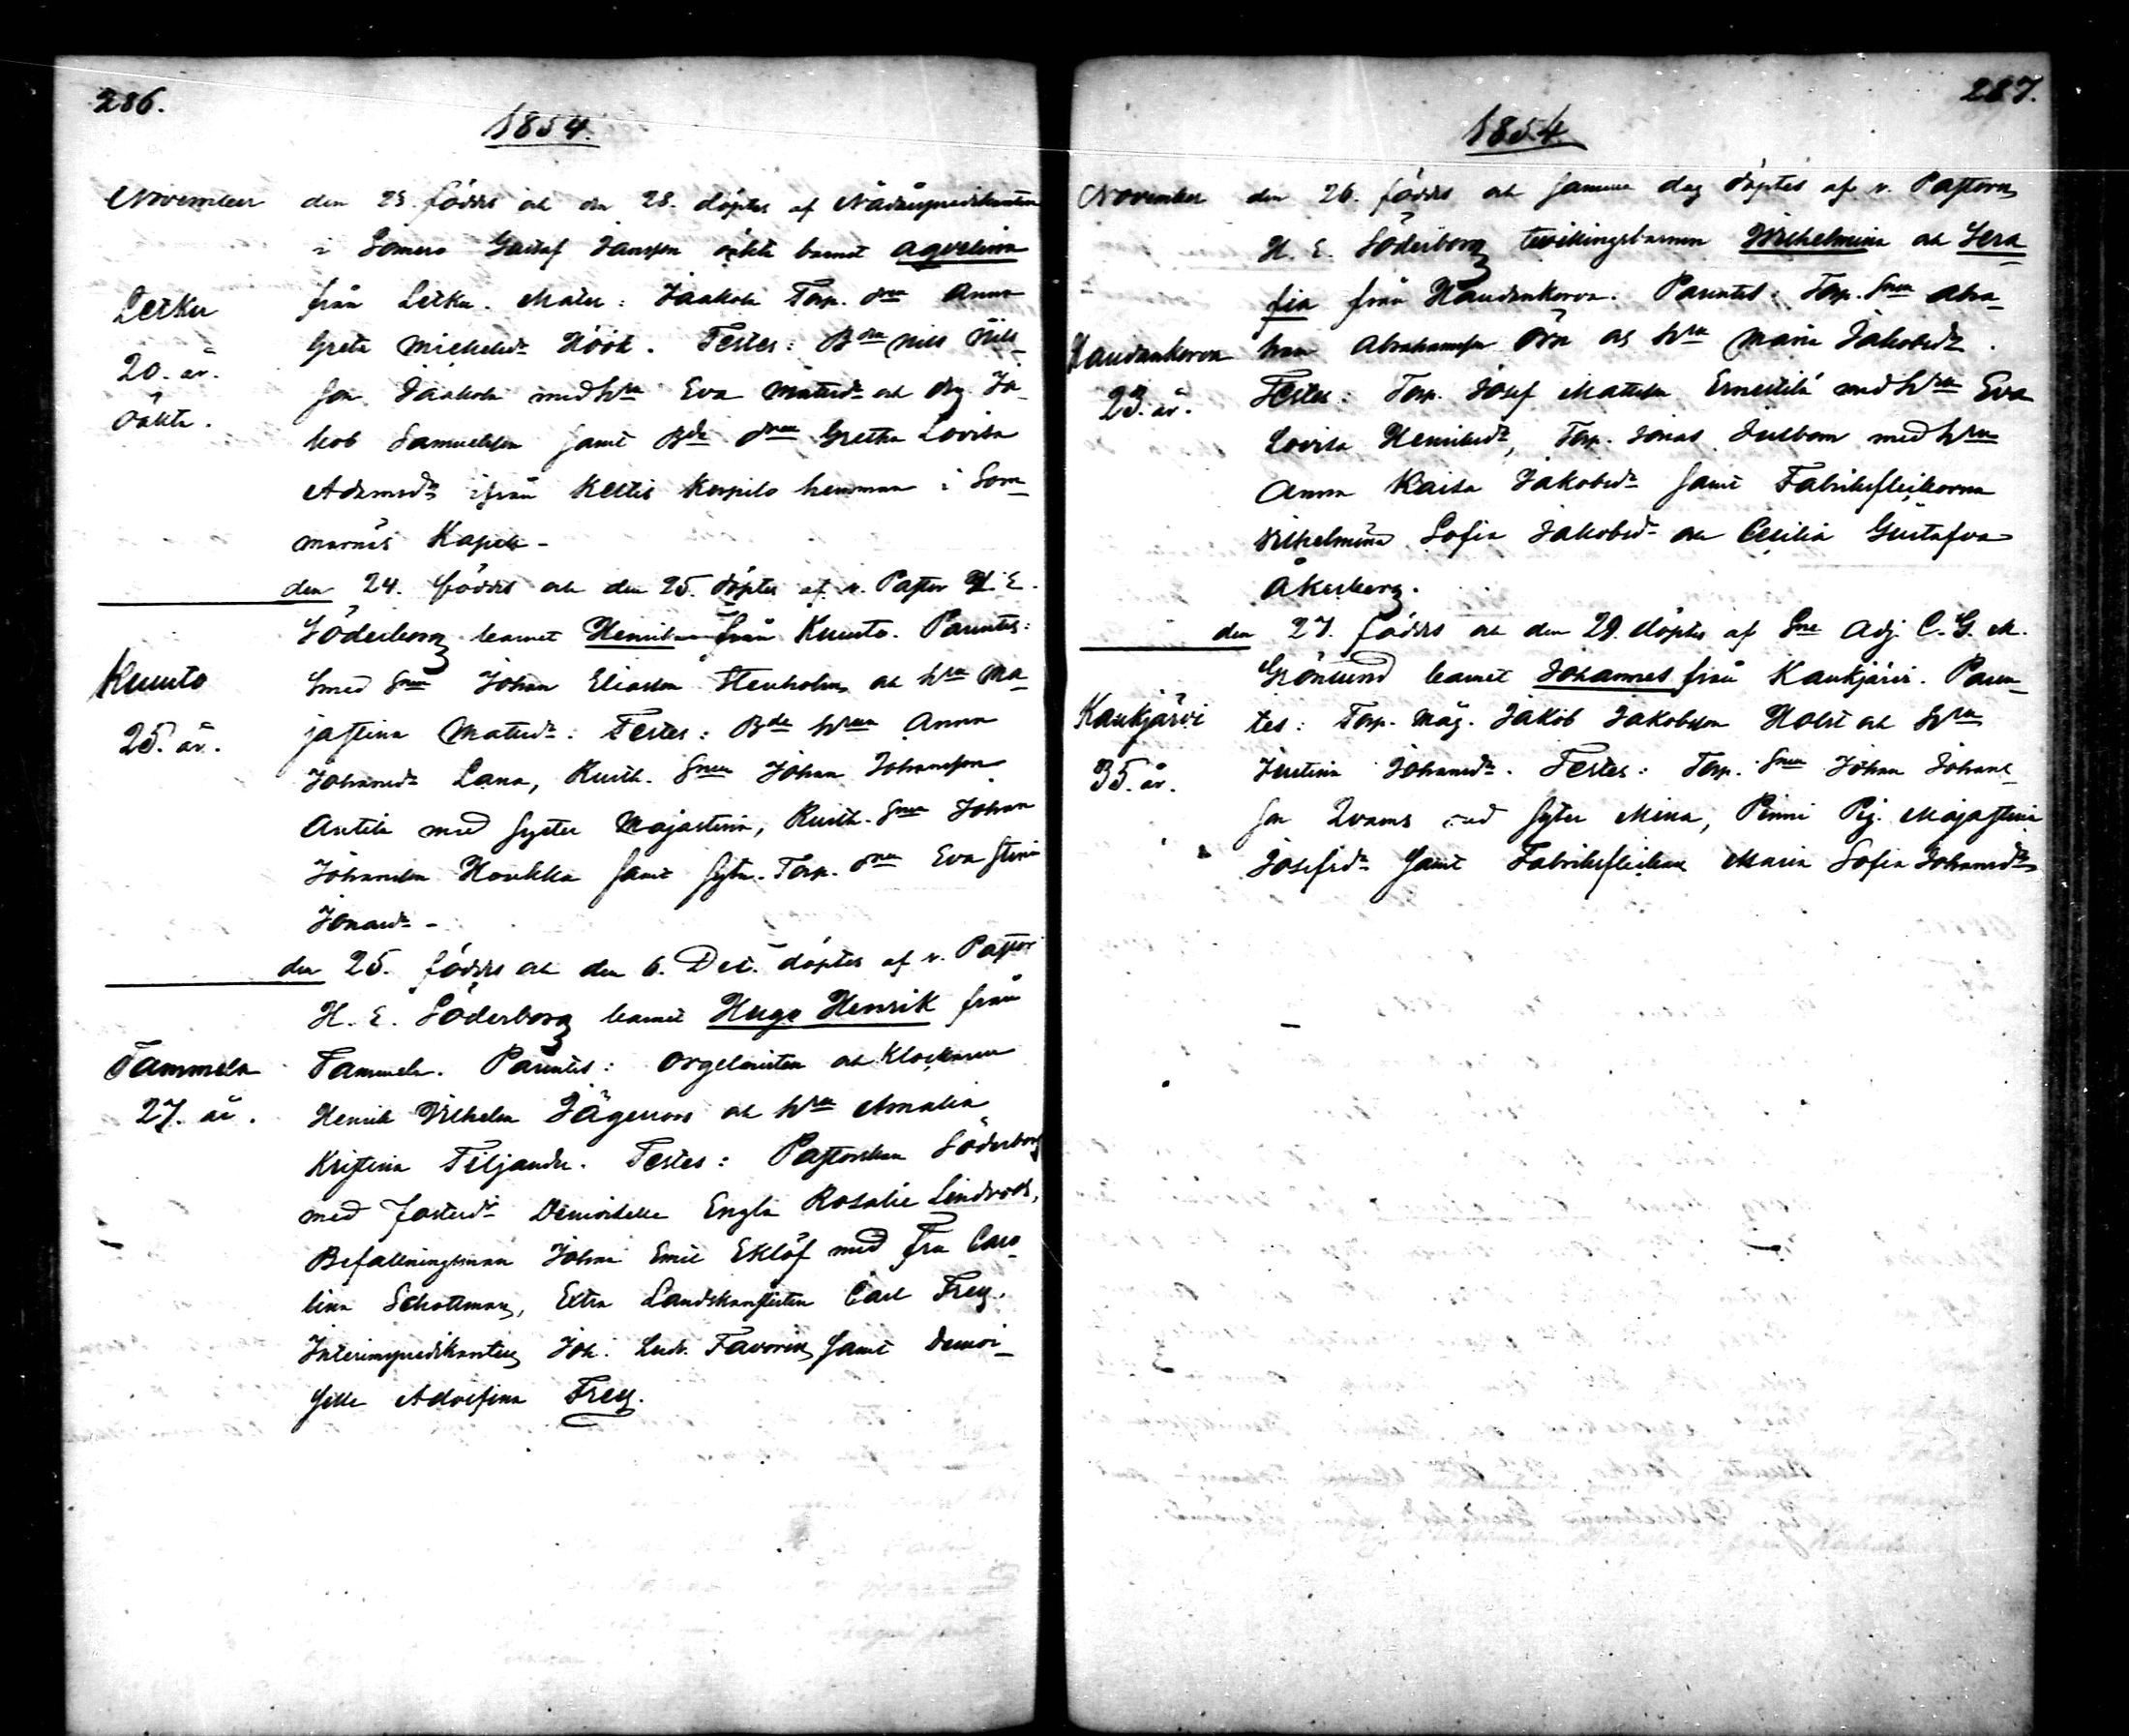 286.
1854.
November den 23. föddes och den 28. döptes af Nådårspredikanten
i Somero Gustaf Jansson oäkta barnet Agvelina
Letku från Letku. Mater: Jaakola Torp. dren Anna
Greta Michelsdr Höök. Testes: Bdn Nils Nils-
20. år. son Jaakola med hru Eva Matsdr och drg. Ja-
oäkta. kob Samuelsson samt Bde dren Gretha Lovisa
Adamsdr ifrån Keltis Kerpilo hemman i Som-
marnäs Kapell-
den 24. föddes och den 25. döptes af v. Pastor H. E.
Söderborg barnet Henrik från Kuuto. Parentes:
Kuuto Smed Snen Johan Eliasson Stenholm och hru Ma-
25. år. jastina Matsdr. Testes: Bde hrun Anna
Johansdr Lana, Rusth. Snen Johan Johansson
Antila med syster Majastina, Rusth. Snen Johan
Johansson Houkka samt syst. Torp. dren Eva Stina
Jonasdr-
den 25. föddes och den 6. Dec. döptes af v. Pastor
H. E. Söderborg barnet Hugo Henrik från
Tammela Tammela. Parentes: Orgelnisten och Klockaren
27. år. Henrik Vilhelm Jägerroos och hru Amalia
Kristina Tiljander. Testes: Pastorskan Söderborg
med fosterdr Demoiselle Engla Rosalie Lindroos,
Befallningsman Johan Emil Eklöf med Fru Caro-
lina Schottman, Extra Landskanslisten Carl Frey.
Interimspredikanten Joh. Ludv. Favorin samt Demoi-
selle Adolfina Frey.
287.
1854.
November den 26. föddes och samma dag döptes af v. Pastorn
H. E. Söderborg tvillingsbarnen Wilhelmina och Sera
fia från Haudankorva. Parentes: Torp. Snen Abra-
Haudankorva ham Abrahamsson Örn och hru Maria Jakobsdr.
23. år. Testes: Torp. Josef Mattsson Ernestilä med hrun Eva
Lovisa Henriksdr, Torp. Jonas Julbom med hrun
Anna Kaisa Jakobsdr samt Fabriksflickorna
Vilhelmina Sofia Jakobsdr och Cecilia Gustafva
Åkerberg.
den 27. föddes och den 29. döptes af Sne Adj. C. G. M.
Grönlund barnet Johannes från Kaukjärvi. Paren-
Kaukjärvi tes: Torp. Måg. Jakob Jakobsson Holst och hru
35. år. Justina Johansdr. Testes: Torp. Snen Johan Johans-
son Qvarns med syster Mina, Pinni Pig. Majastina
Josefsdr samt Fabriksflickan Maria Sofia Johansdr